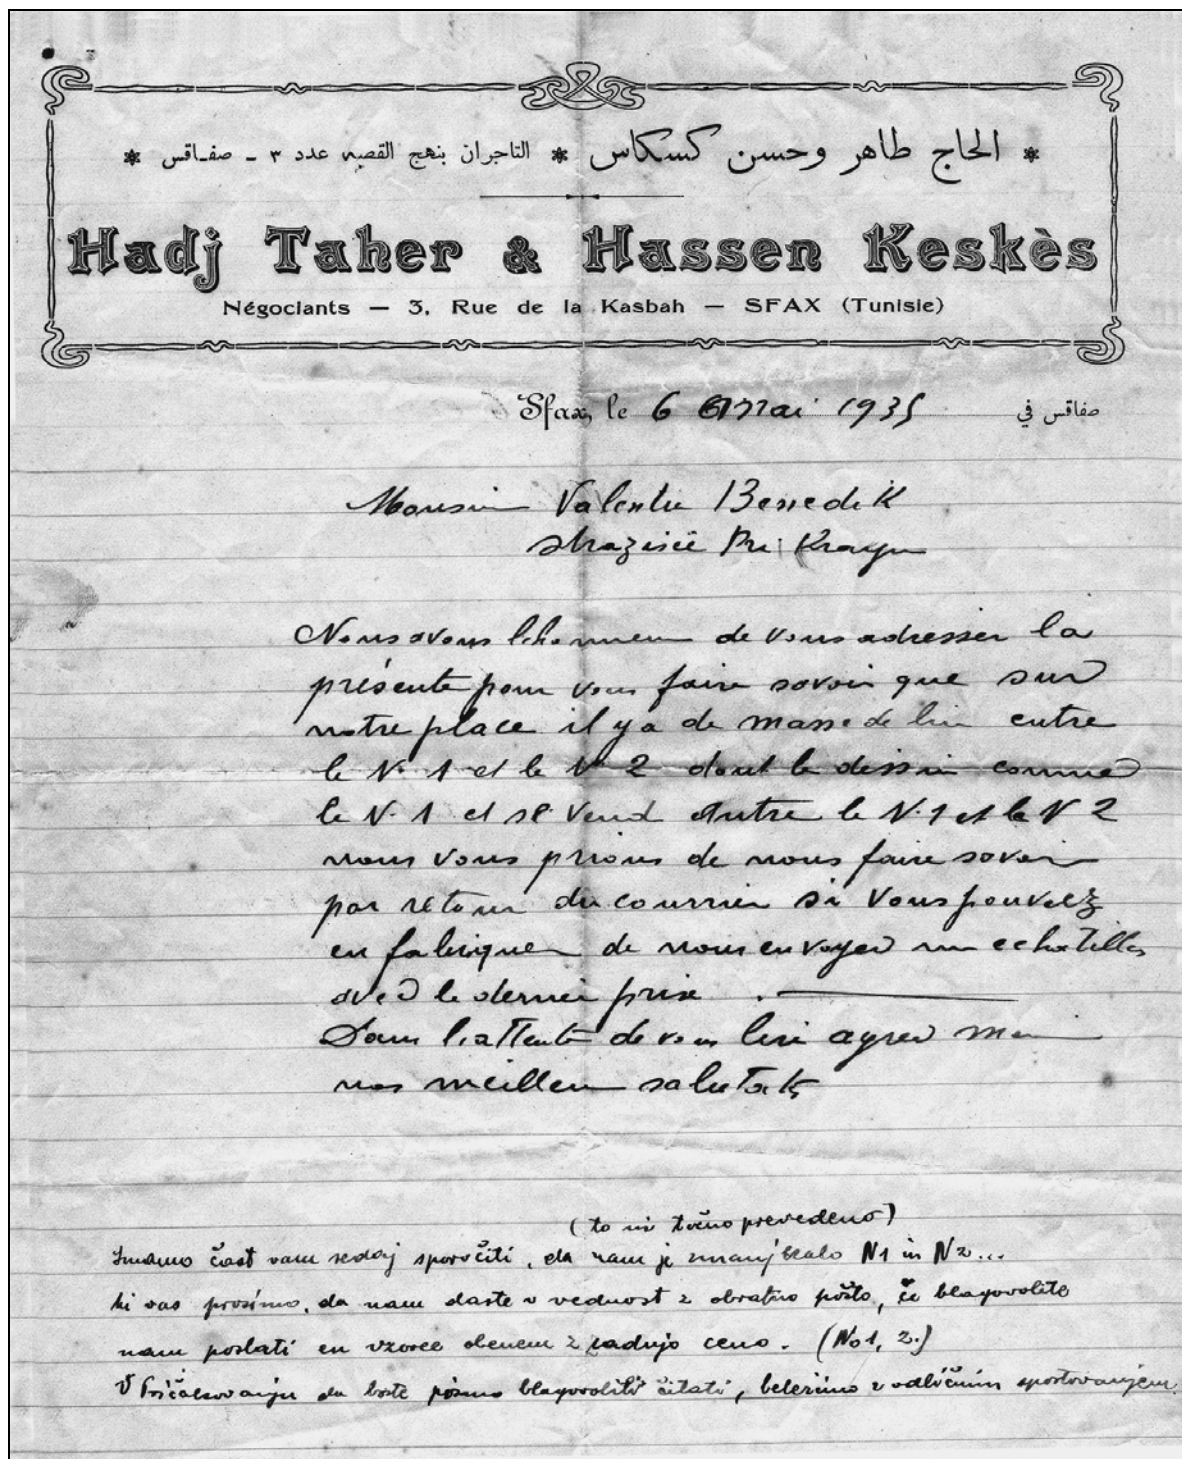 * الحاج طاهر وحسن كسكاس * التاجران بنهج القصبه عدد ٣ ـ صفـاقس *
Hadj Taher & Hassen Keskès
Négociants — 3, Rue de la Kasbah — SFAX (Tunisie)
Sfax, le 6 Mai 1935 صفاقس في
Monsieur Valentin Benedik
Strazisce Pri Kranju
Nous avons l'honneur de vous adresser la
présente pour vous faire savoir que sur
notre place il y a de masse de lin entre
le N. 1 et le N. 2 dont le dessin comme
le N. 1 et se vend entre le N. 1 et le N 2
nous vous prions de nous faire savoir
par retour du courrier si vous pouvez
en fabriquer de nous envoyer un echatillon
avec le dernier prix . —
Dans l'attente de vous lire agreer
nos meilleurs salutats
(to ni točno prevedeno)
Imamo čast vam sedaj sporočiti, da nam je zmanjkalo N1 in N2...
ki vas prosimo, da nam daste v vednost z obratno pošto, če blagovolite
nam poslati en vzorec obenem z zadnjo ceno. (No 1, 2.)
V pričakovanju da boste pismo blagovolili čitati, beležimo z odličnim spoštovanjem